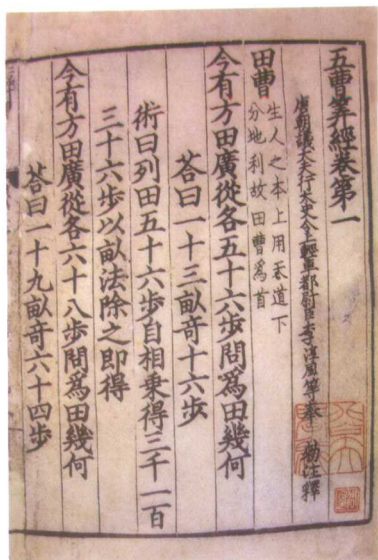 五曹筭經卷第一
唐朝議大夫行太史令上輕車都尉臣李淳風等奉 勑注釋
田曹
生人之本上用天道下
分地利故田曹爲首
今有方田廣從各五十六步問爲田幾何
荅曰一十三畝竒十六步
術曰列田五十六步自相乗得三千一百
三十六步以畝法除之即得
今有方田廣從各六十八步問爲田幾何
荅曰一十九畝竒六十四步